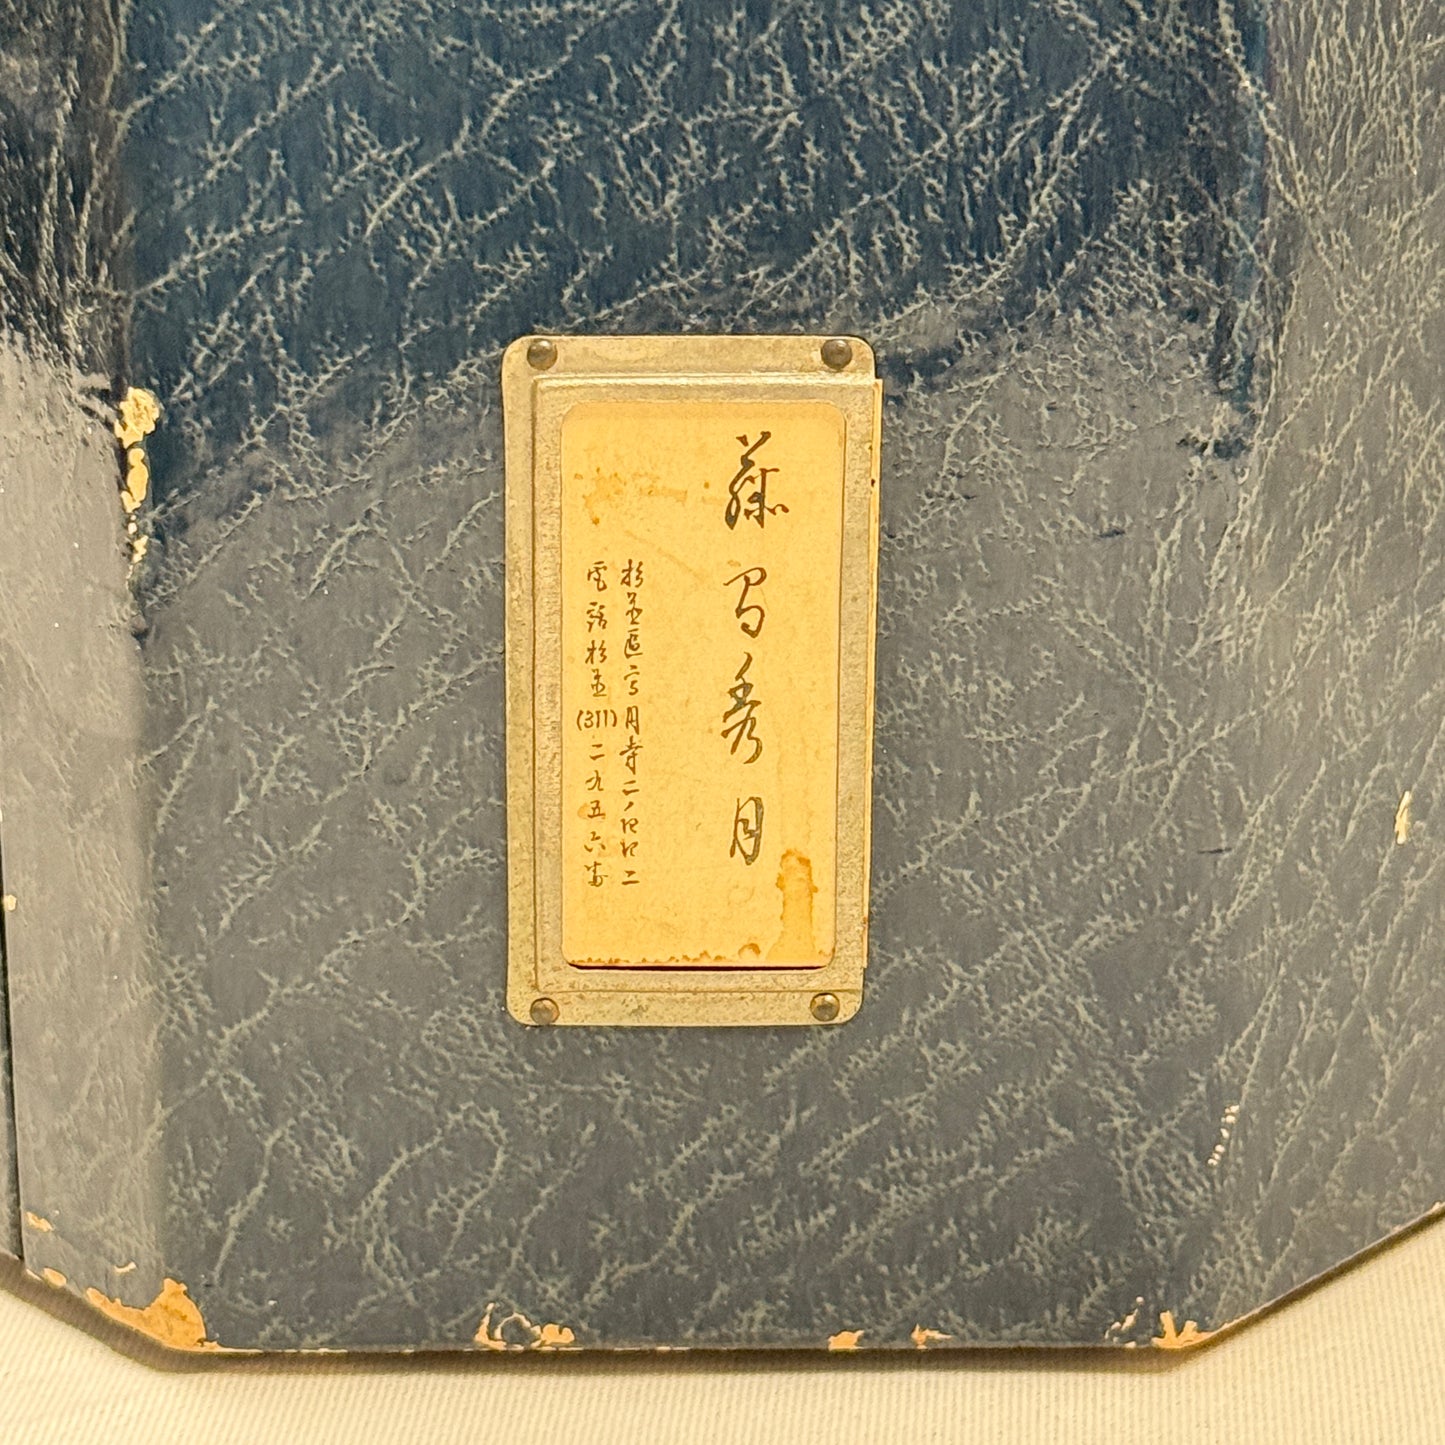 藤間秀月
杉並區高円寺二ノ
電話杉並(311)二九五六番